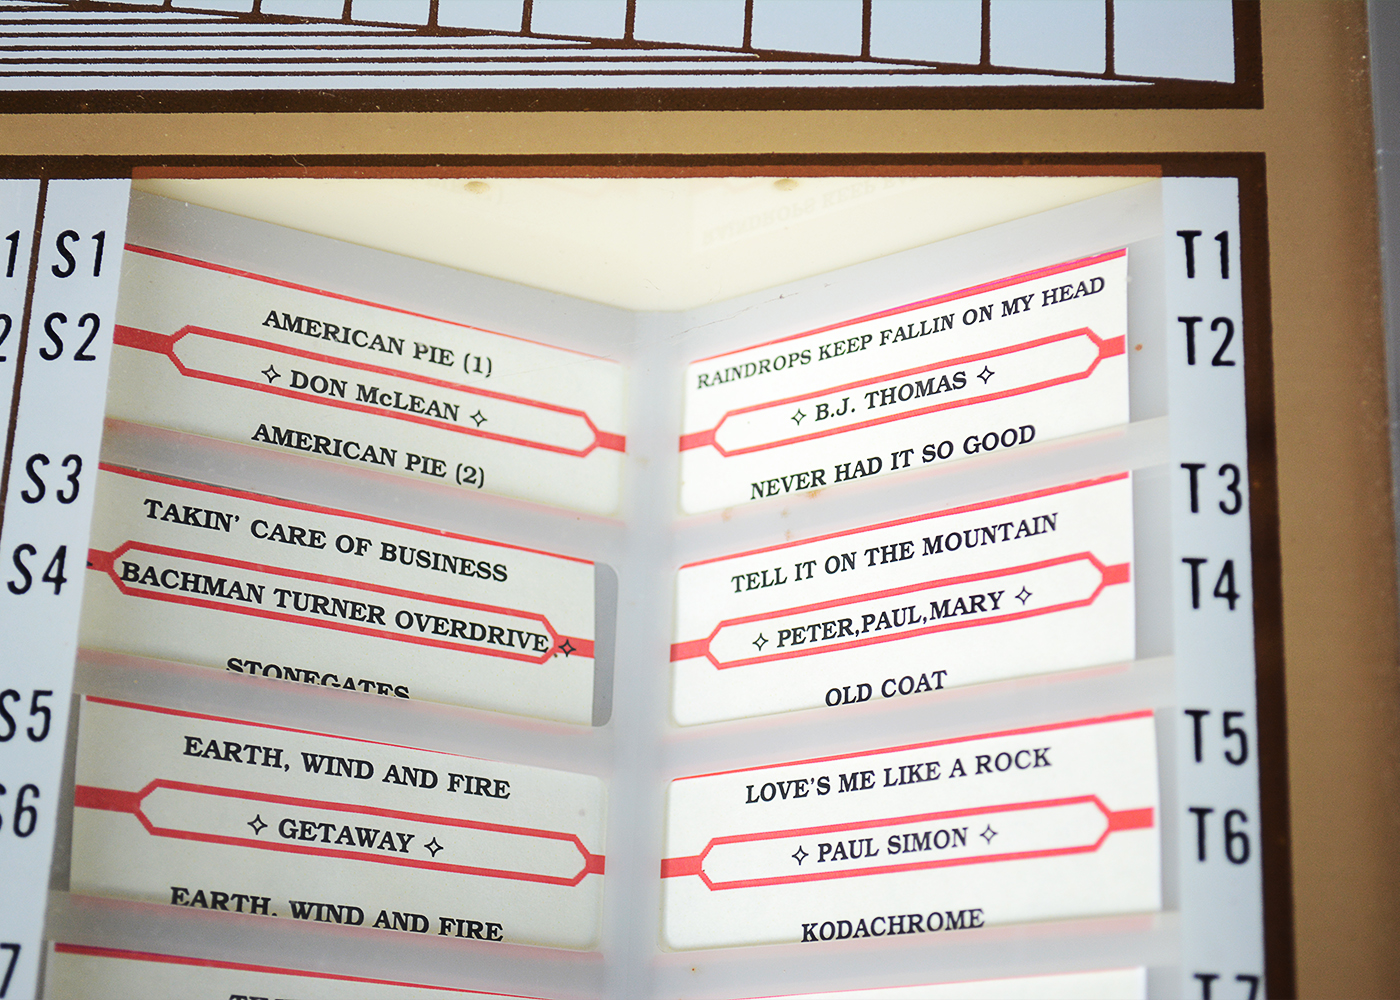 S1
S2
AMERICAN PIE (1)
✧ DON McLEAN ✧
AMERICAN PIE (2)
S3
S4
TAKIN' CARE OF BUSINESS
BACHMAN TURNER OVERDRIVE ✧
STONEGATES
S5
S6
EARTH, WIND AND FIRE
✧ GETAWAY ✧
EARTH, WIND AND FIRE
7
T1
T2
RAINDROPS KEEP FALLIN ON MY HEAD
✧ B.J. THOMAS ✧
NEVER HAD IT SO GOOD
T3
T4
TELL IT ON THE MOUNTAIN
✧ PETER,PAUL,MARY ✧
OLD COAT
T5
T6
LOVE'S ME LIKE A ROCK
✧ PAUL SIMON ✧
KODACHROME
T7
1
2